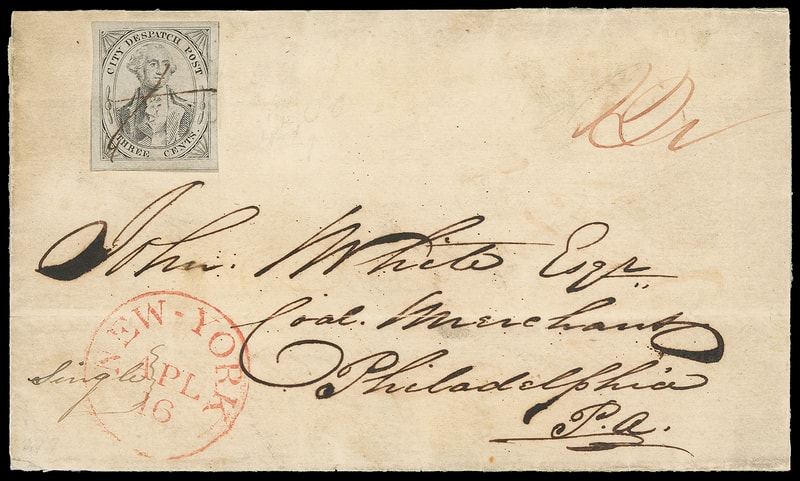 CITY DESPATCH POST
THREE CENTS.
John. White Esqr
Coal. Merchant
Philadelphia
P.a.
NEW-YORK
APL
16
Single